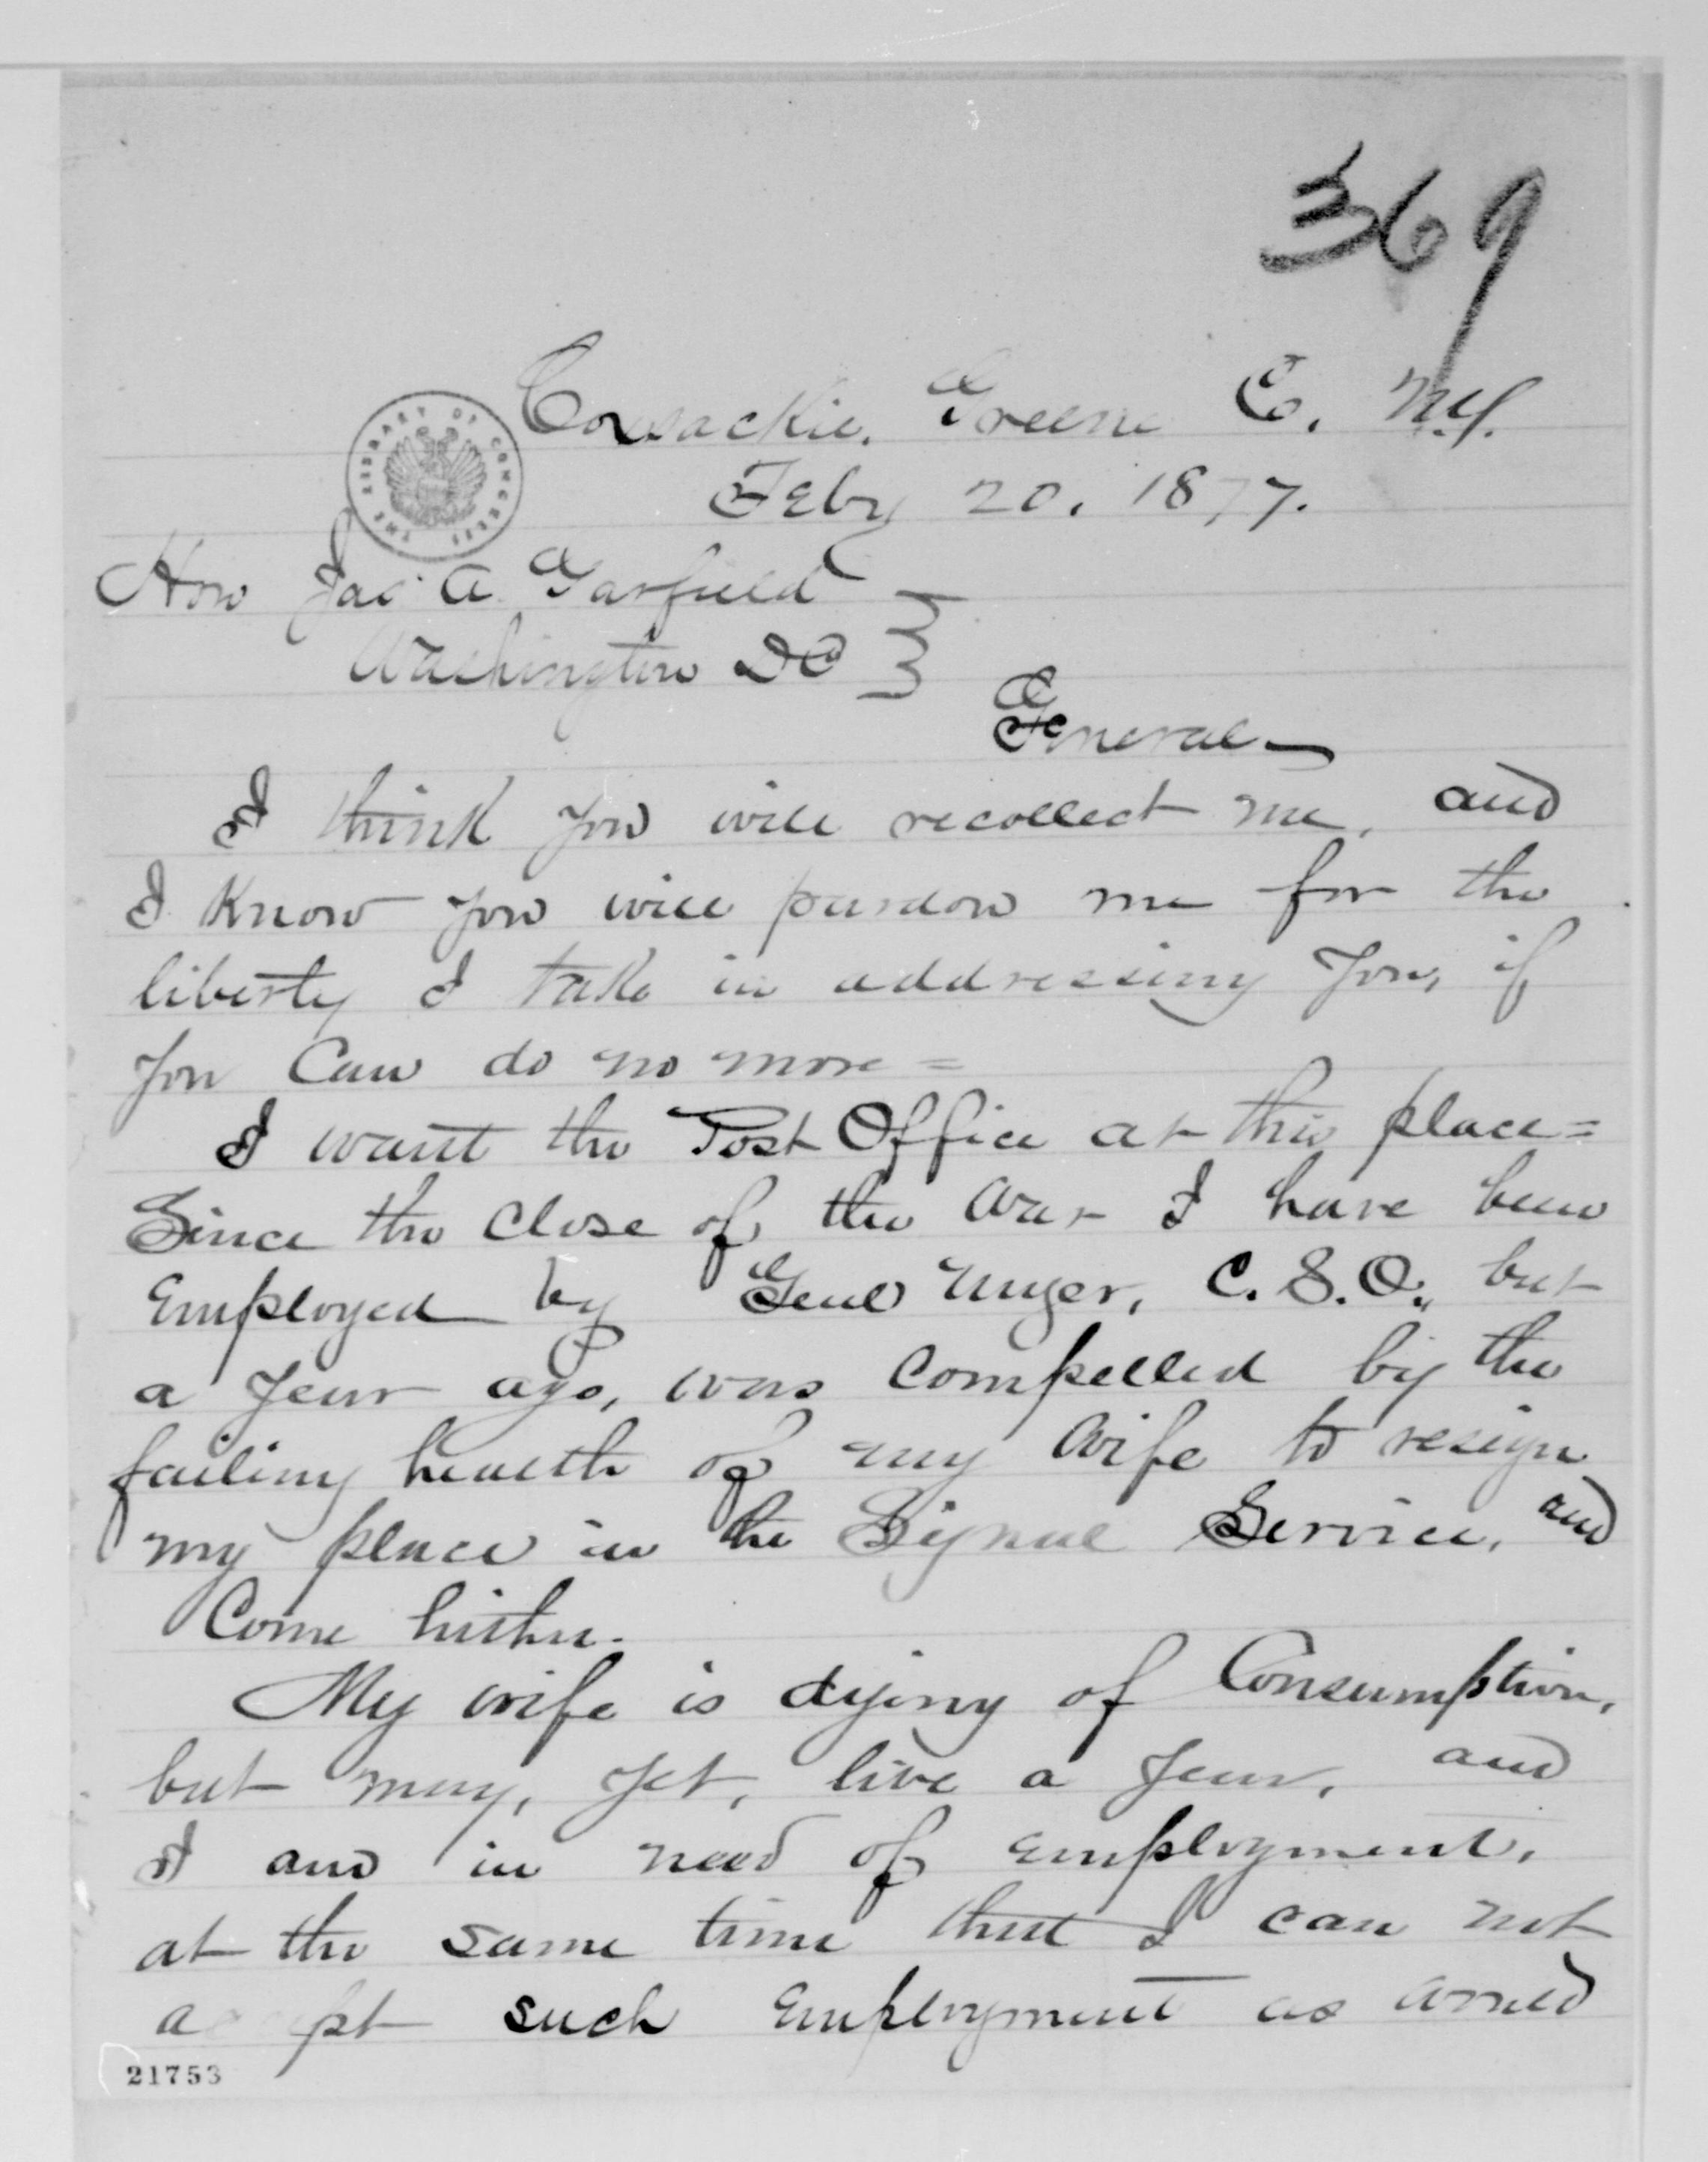 369
Coxsackie, Greene Co, N.Y.
Feby 20, 1877.
THE LIBRARY OF CONGRESS
Hon Jas A Garfield
Washington DC
General
I think you will recollect me, and
I know you will pardon me for the
liberty I take in addressing you, if
you can do no more =
I want the Post Office at this place =
Since the close of the war I have been
employed by Genl Myer, C.S.O., but
a year ago, was compelled by the
failing health of my wife to resign
my place in the Signal Service, and
come hither.
My wife is dying of Consumption,
but may, yet, live a year, and
I am in need of employment,
at the same time that I can not
accept such employment as would
21753